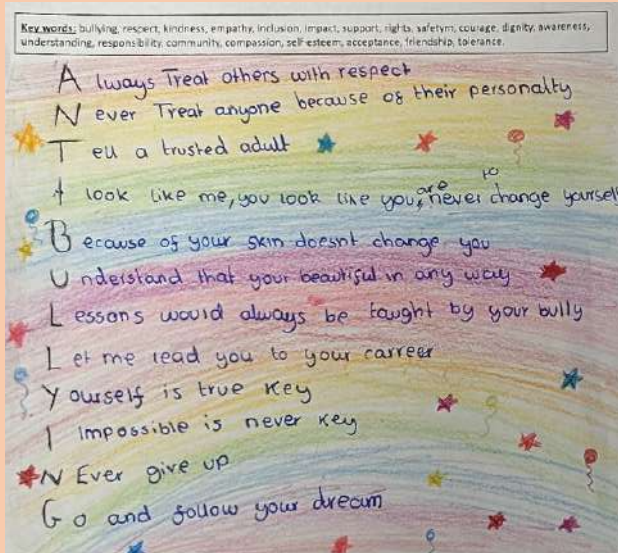 Key words: bullying, respect, kindness, empathy, inclusion, impact, support, rights, safetym, courage, dignity, awareness,
understanding, responsibility, community, compassion, self-esteem, acceptance, friendship, tolerance.
Always Treat others with respect
Never Treat anyone because of their personalty
Tell a trusted adult
I look like me, you look like you, are never to change yourself
Because of your skin doesnt change you
Understand that your beautiful in any way
Lessons would always be taught by your bully
Let me lead you to your carreer
Yourself is true key
I Impossible is never key
NEver give up
Go and follow your dream